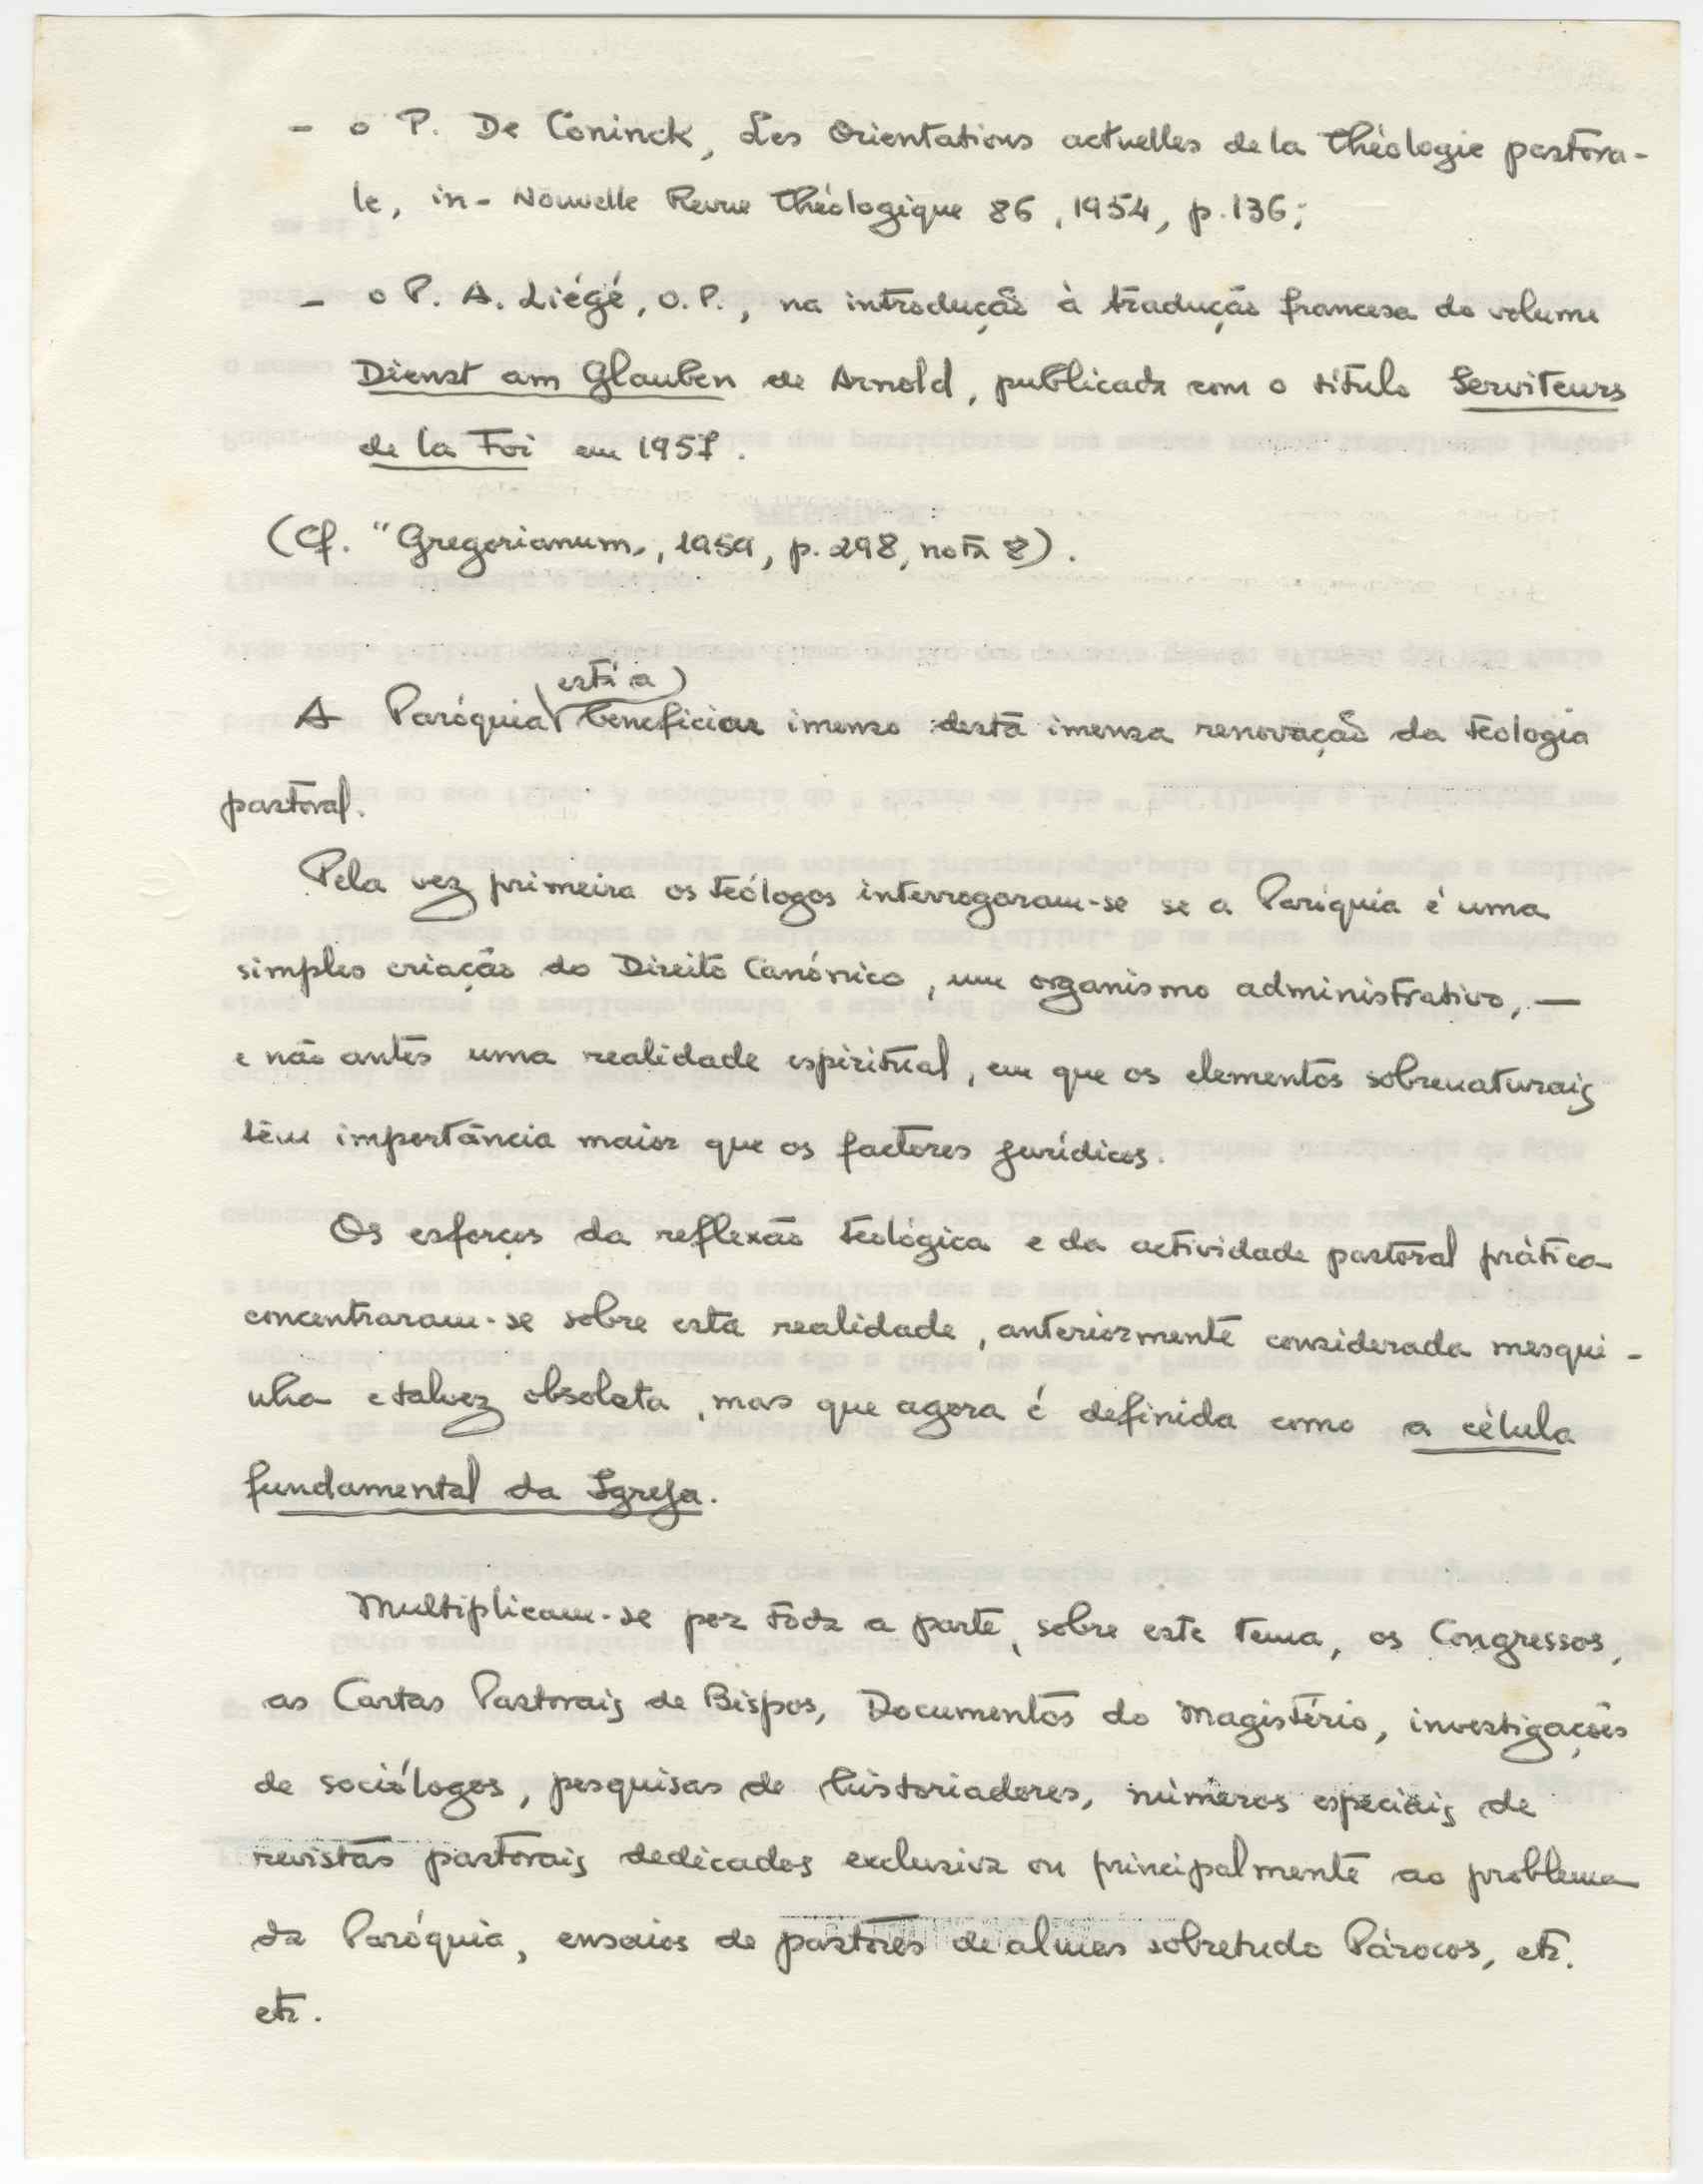 - o P. De Coninck, Les Orientations actuelles de la Théologie pastora-
le, in- Nouvelle Revue Théologique 86, 1954, p. 136;
- o P. A. Liégé, O.P., na introdução à tradução francesa do volume
Dienst am Glauben de Arnold, publicada com o título Serviteurs
de la Foi em 1957.
(Cf. "Gregorianum", 1959, p. 298, nota 8).
está a
A Paróquia beneficiar imenso desta imensa renovação da teologia
pastoral.
Pela vez primeira os teólogos interrogaram-se se a Paróquia é uma
simples criação do Direito Canónico, um organismo administrativo, —
e não antes uma realidade espiritual, em que os elementos sobrenaturais
têm importância maior que os factores jurídicos.
Os esforços da reflexão teológica e da actividade pastoral prática
concentraram-se sobre esta realidade, anteriormente considerada mesqui-
nha e talvez obsoleta, mas que agora é definida como a célula
fundamental da Igreja.
Multiplicam-se por toda a parte, sobre este tema, os Congressos,
as Cartas Pastorais de Bispos, Documentos do Magistério, investigações
de sociólogos, pesquisas de historiadores, números especiais de
revistas pastorais dedicados exclusiva ou principalmente ao problema
da Paróquia, ensaios de pastores de almas sobretudo Párocos, etc.
etc.